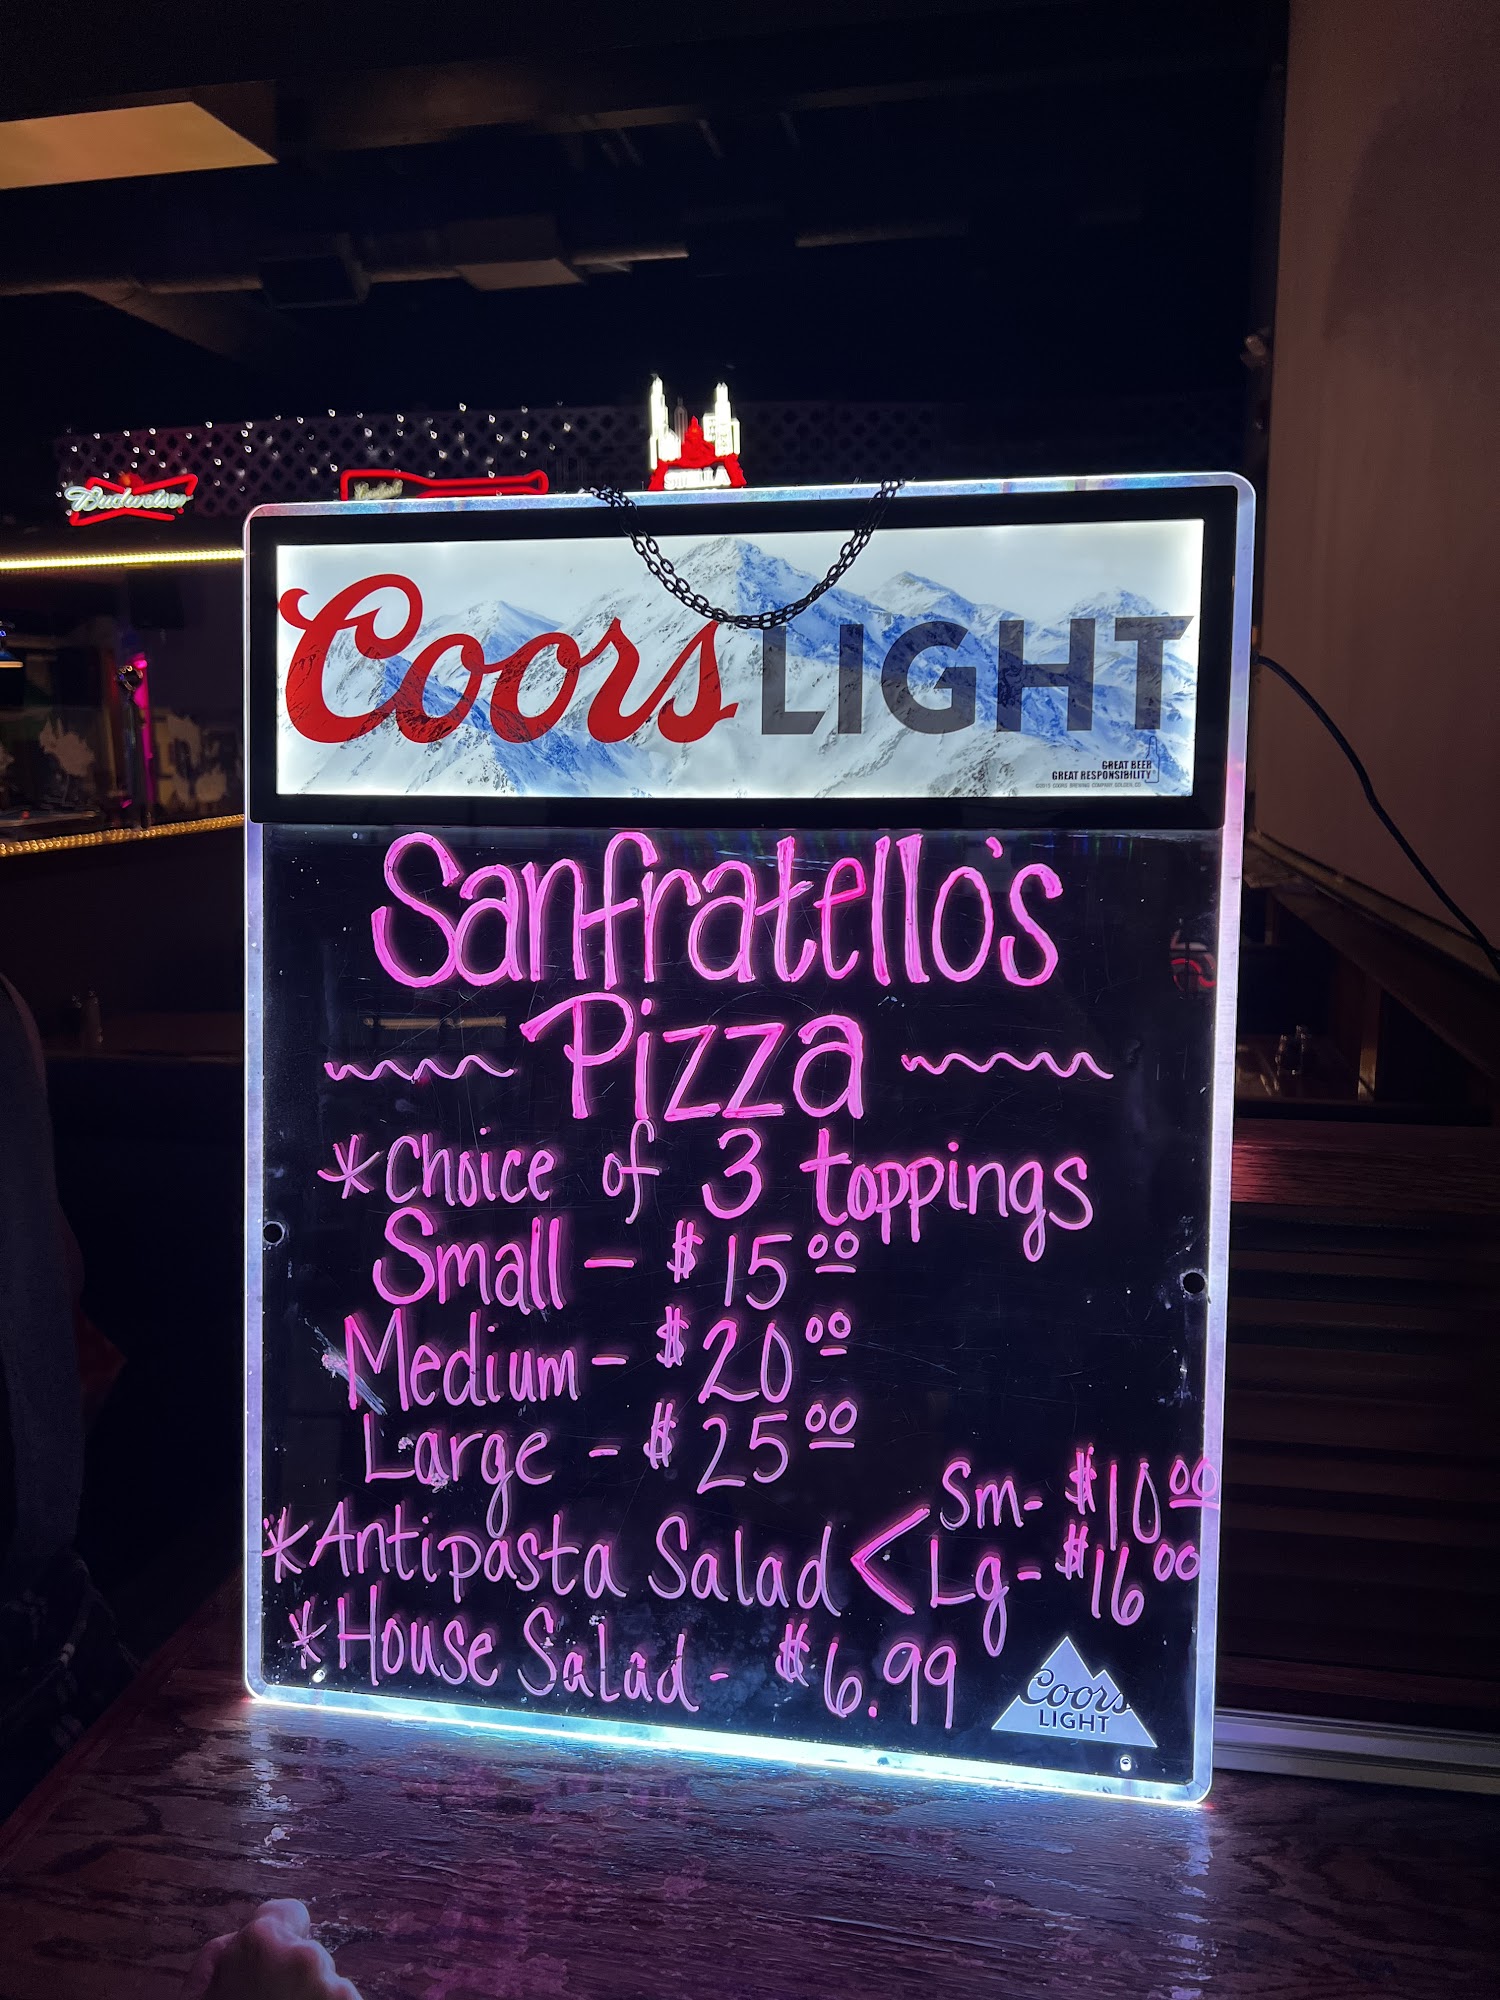 Budweiser
STELLA
Coors LIGHT
GREAT BEER
GREAT RESPONSIBILITY
Sanfratello's
Pizza
*Choice of 3 toppings
Small - $15.00
Medium - $20.00
Large - $25.00
*Antipasta Salad < Sm- $10.00
Lg- $16.00
*House Salad - $6.99
Coors
LIGHT